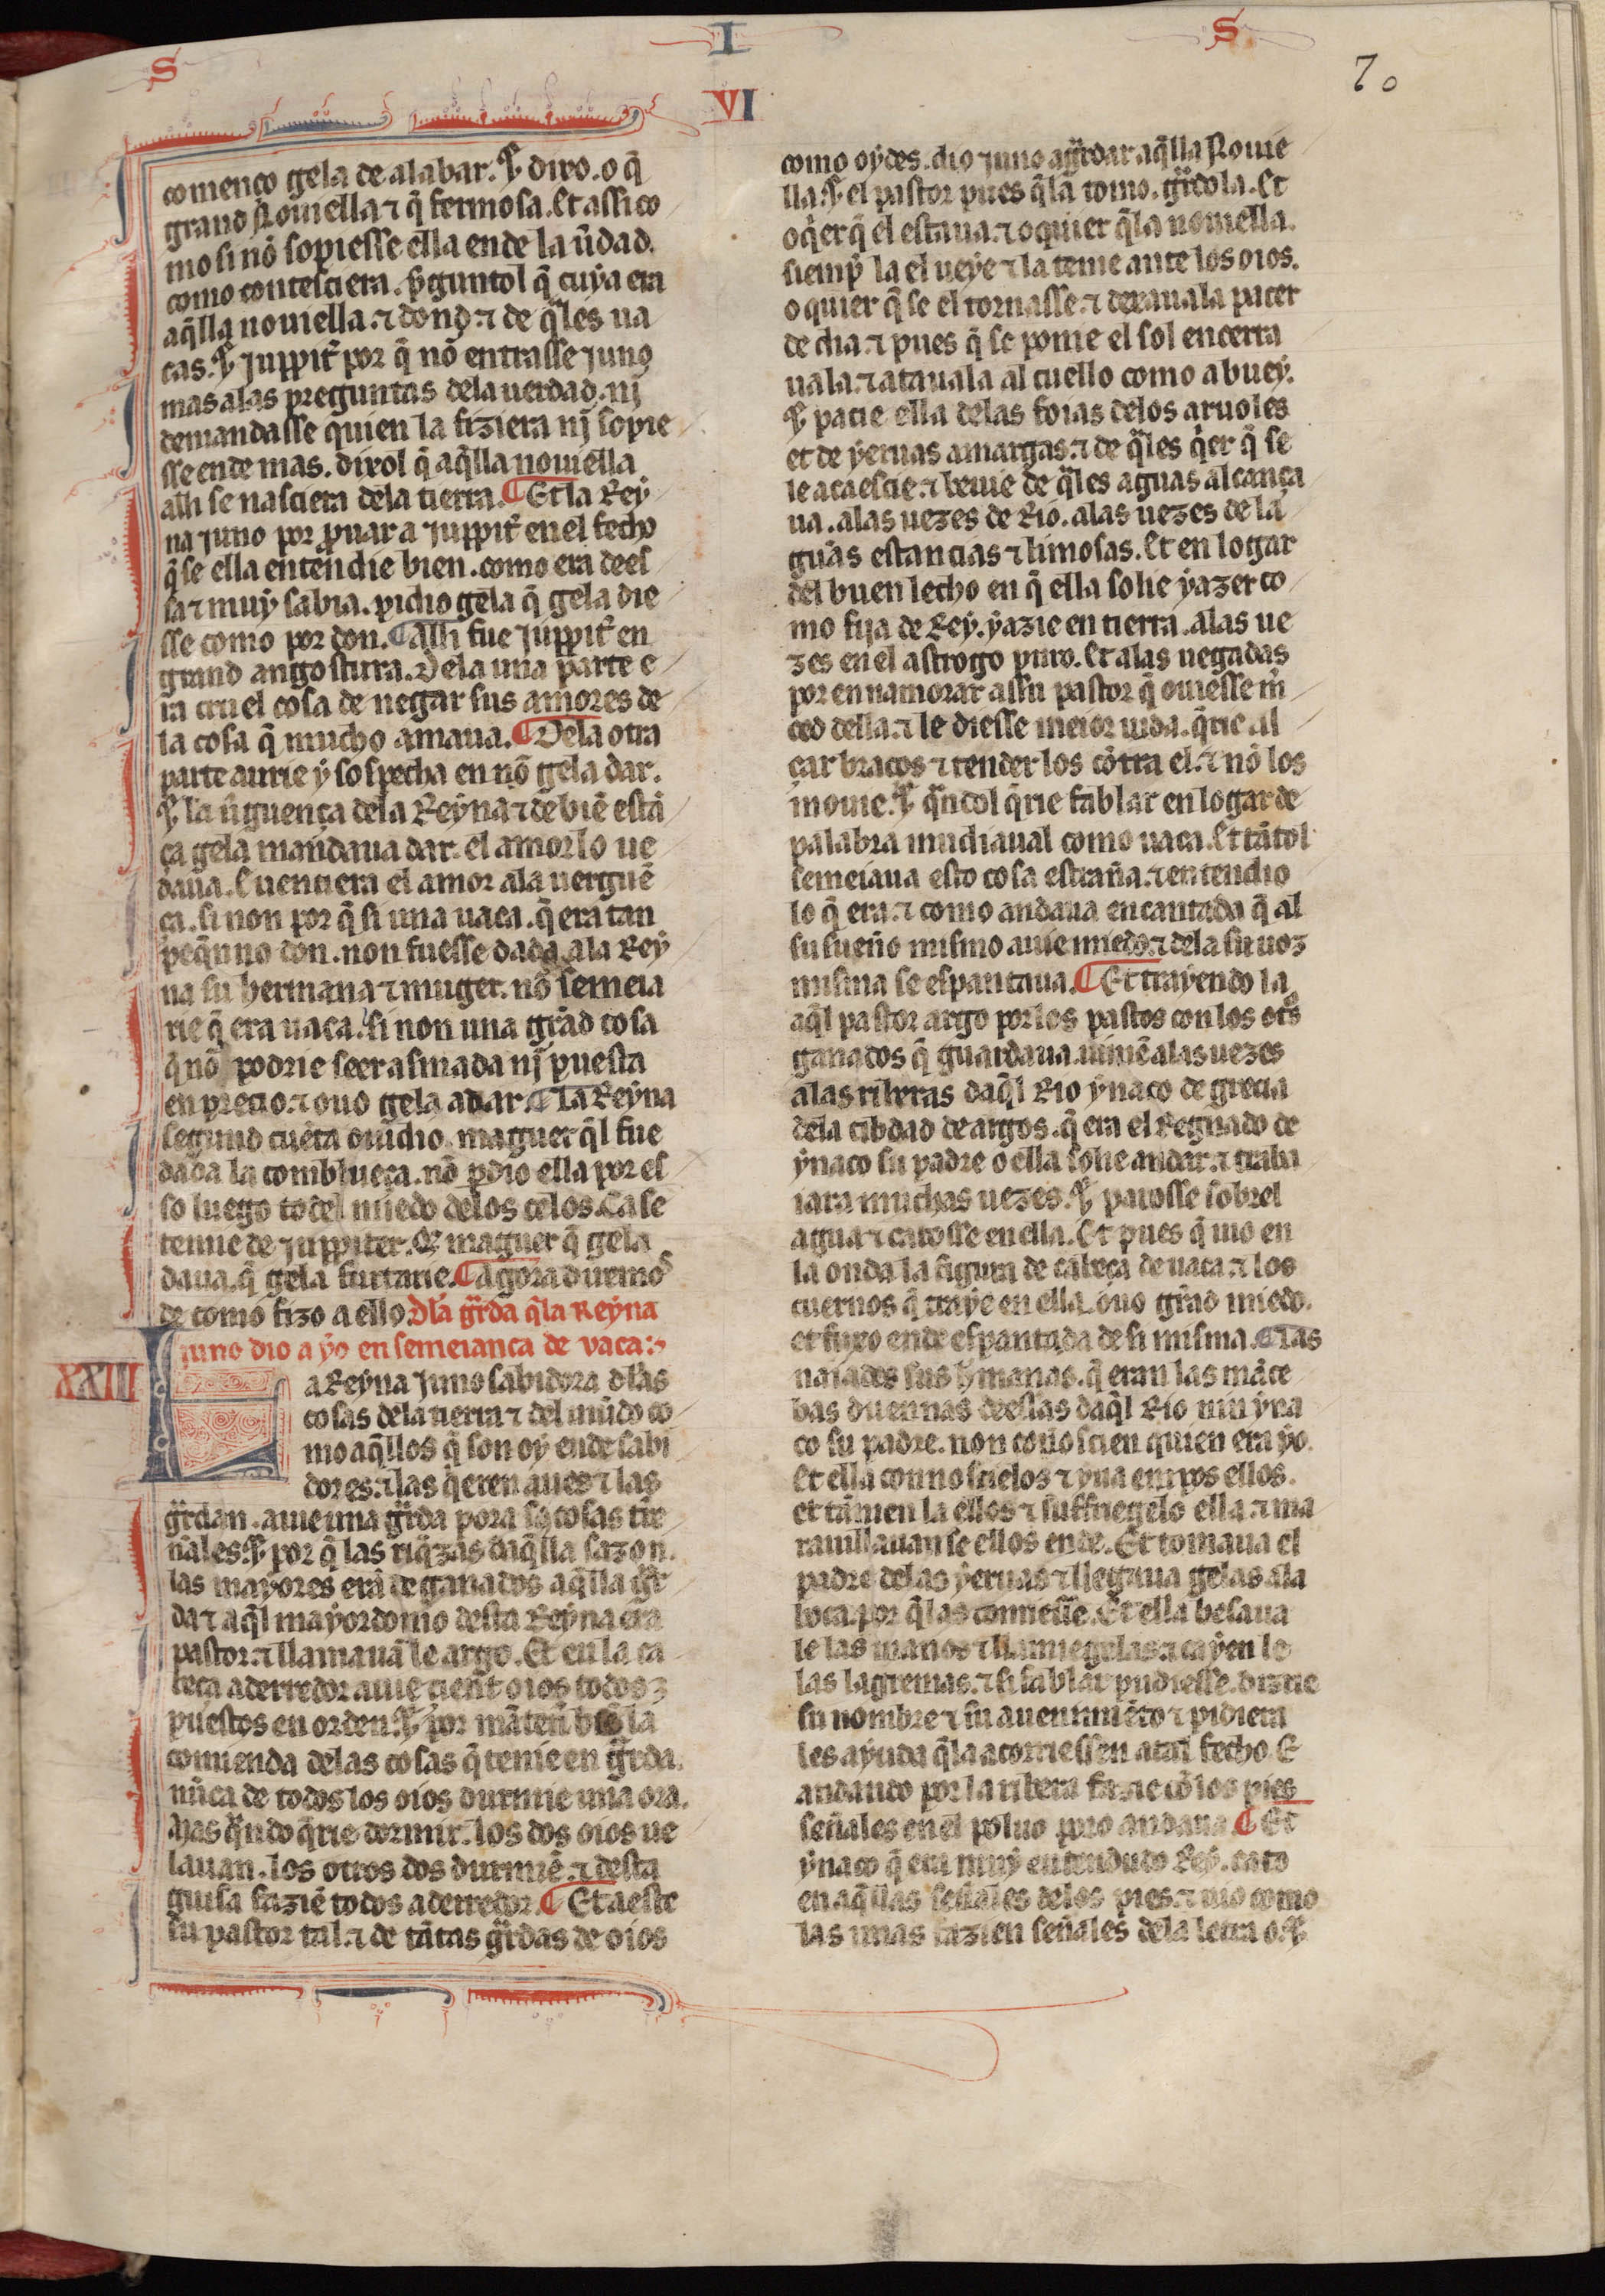 S I S
VI
70
començo gela de alabar. ⁊ dixo. o q̃
grand Nouiella ⁊ q̃ fermosa. Et assi co
mo si nõ sopiesse ella ende la ũdad.
como contesciera. p̃guntol q̃ cuya era
aq̃lla nouiella. ⁊ dond ⁊ de q̃les ua
cas. ⁊ juppit̃ por q̃ nõ entrasse juno
mas alas preguntas dela uerdad. nj
demandasse quien la fiziera nj sopie
sse ende mas. dixol q̃ aq̃lla nouiella
alli se nasciera dela tierra. ¶ Et la Rey
na juno por prouar a juppit̃ en el fecho
q̃ se ella entendie bien. como era dees
sa ⁊ muy sabia. pidio gela q̃ gela die
sse como por don. ¶ Alli fue juppit̃ en
grand angostura. Dela una parte e
ra cruel cosa de negar sus amores de
la cosa q̃ mucho amaua. ¶ Dela otra
parte aurie y sospecha en nõ gela dar.
⁊ la ũguença dela Reyna ⁊ de biẽ estã
ça gela mandaua dar. el amor lo ue
daua. E uenciera el amor ala uerguẽ
ça. si non por q̃ si una uaca. q̃ era tan
peq̃nno don. non fuesse dada ala Rey
na su hermana ⁊ muger. nõ semeia
rie q̃ era uaca. si non una grãd cosa
q̃ nõ podrie seer asmada nj puesta
en precio. ⁊ ouo gela adar. ¶ La Reyna
segund cuẽta ouidio. maguer q̃l fue
dada la combhueça. nõ p̃dio ella por es
so luego todel miedo delos celos. Ca se
temie de juppiter. Q̃ maguer q̃ gela
daua. q̃ gela furtarie. ¶ Agora diremos
de como fizo a ello. Dla gr̃da q̃la Reyna
juno dio a yo en semeiança de vaca:
XXIII
La Reyna juno sabidora dlas
cosas dela tierra ⁊ del mũdo co
mo aq̃llos q̃ son oy ende sabi
dores. ⁊ las q̃eren auer ⁊ las
gr̃dan. auie una gr̃da pora sus cosas t̃re
nales. ⁊ por q̃ las riq̃zas daq̃lla sazon.
las mayores erã de ganados aq̃lla gr̃
da ⁊ aq̃l mayordomo desta Reyna era
pastor. ⁊ llamauã le argo. Et en la ca
beça aderredor auie cient oios todos
puestos en orden. ⁊ por mãten̄ biẽ la
comienda delas cosas q̃ tenie en gr̃da.
nũca de todos los oios durmie una ora.
Mas q̃ndo q̃rie dormir. los dos oios ue
lauan. los otros dos durmiẽ. ⁊ desta
guisa faziẽ todos aderredor. ¶ Et a este
su pastor tal. ⁊ de tãtas gr̃das de oios
como oydes. dio juno agr̃dar aq̃lla Nouie
lla. ⁊ el pastor pues q̃la tomo. gr̃dola. Et
oq̃er q̃ el estaua. ⁊ oquier q̃la nouiella.
siemp̃ la el ueye ⁊ la tenie ante los oios.
o quier q̃ se el tornasse. ⁊ dexauala pacer
de dia. ⁊ pues q̃ se ponie el sol encerra
uala. ⁊ atauala al cuello como a buey.
⁊ pacie ella delas foias delos aruoles
et de yeruas amargas. ⁊ de q̃les q̃er q̃ se
le acaescie. ⁊ beuie de q̃les aguas alcança
ua. alas uezes de Rio. alas uezes de la
gunas estancias ⁊ limosas. Et en logar
del buen lecho en q̃ ella solie yazer co
mo fija de Rey. yazie en tierra. alas ue
zes en el astrogo puro. Et alas uegadas
por ennamorar assu pastor q̃ ouiesse m̃
ced della. ⁊ le diesse meior uida. q̃rie al
çar braços ⁊ tender los cõtra el. ⁊ nõ los
mouie. ⁊ q̃ndol q̃rie fablar en logar de
palabra mudiaual como uaca. Et tãtol
semeiaua esto cosa estraña. ⁊ entendio
lo q̃ era. ⁊ como andaua encantada q̃ al
su sueño mismo auie miedo. ⁊ dela su uoz
misma se espantaua. ¶ Et trayendo la
aq̃l pastor argo por los pastos con los otros
ganados q̃ guardaua. uiniẽ alas uezes
alas riberas daq̃l Rio ynaco de grecia
dela cibdad de argos. q̃ era el Regnado de
ynaco su padre o ella solie andar. ⁊ treba
iara muchas uezes. ⁊ parosse sobrel
agua ⁊ catosse en ella. Et pues q̃ uio en
la onda la figura de cabeça de uaca ⁊ los
cuernos q̃ traye en ella. ouo grãd miedo.
et fuxo ende espantada de si misma. ¶ Las
naiades sus h̃manas. q̃ eran las mãce
bas duennas deessas daq̃l Rio nin yna
co su padre. non coñoscien quien era yo.
Et ella connoscielos ⁊ yua empos ellos.
et tãnien la ellos ⁊ suffriegelo ella. ⁊ ma
rauillauan se ellos ende. Et tomaua el
padre delas yeruas ⁊ llegaua gelas ala
boca. por q̃ las comiesse. Et ella besaua
le las manos ⁊ llamiegelas. ⁊ cayen le
las lagremas. ⁊ si fablar pudiesse. dizrie
su nombre ⁊ su auenimiẽto ⁊ pidiera
les ayuda q̃la acorriessen a tal fecho. E
andando por la ribera fazie cõ los pies
señales en el poluo poro andaua. ¶ Et
ynaco q̃ era muy entendudo Rey. cato
en aq̃llas señales delos pies. ⁊ uio como
las unas fazien señales dela letra o. ⁊